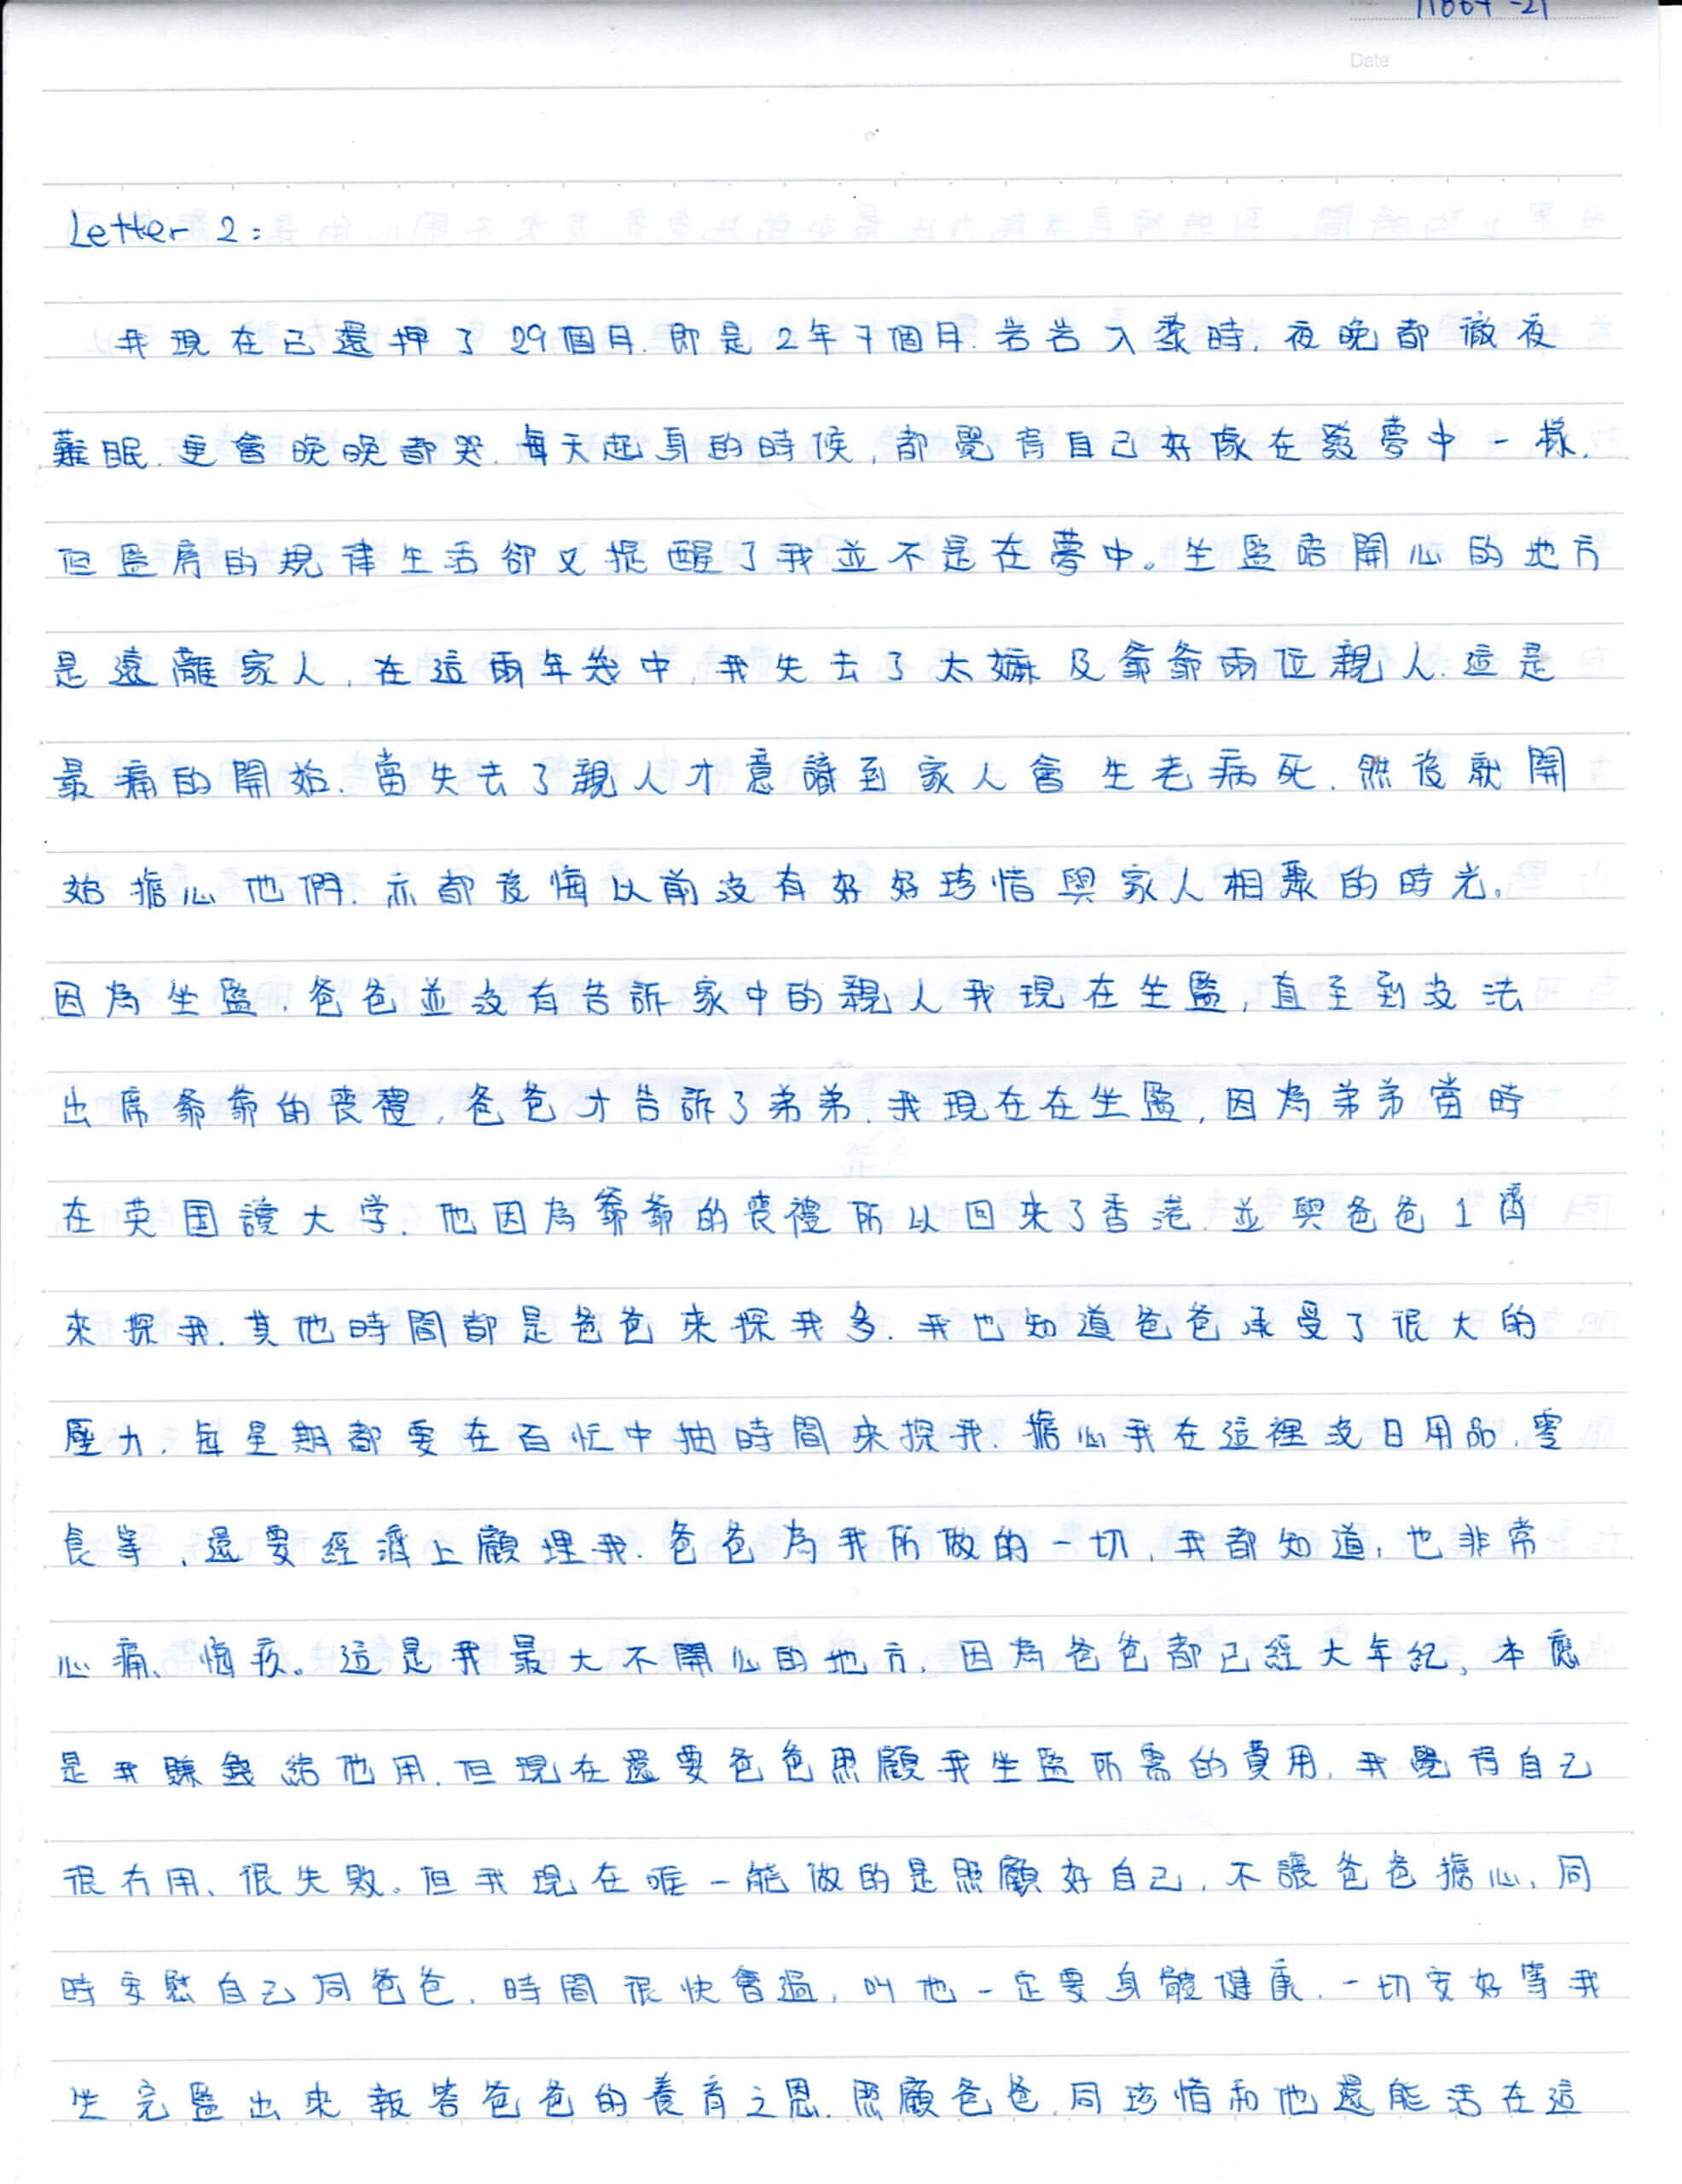 11864-21
Date
Letter 2:
我現在已還押了29個月.即是2年7個月.岩岩入冊時,夜晚都徹夜
難眠.更會晚晚都哭.每天起身的時候,都覺得自己好像在發夢中一樣.
但監房的規律生活卻又提醒了我並不是在夢中。坐監唔開心的地方
是遠離家人,在這兩年幾中,我失去了太嫲及爺爺兩位親人.這是
最痛的開始.當失去了親人才意識到家人會生老病死.然後就開
始擔心他們.亦都後悔以前沒有好好珍惜與家人相聚的時光。
因為坐監.爸爸並沒有告訴家中的親人我現在坐監,直至到沒法
出席爺爺的喪禮,爸爸才告訴了弟弟.我現在在坐監,因為弟弟當時
在英国讀大学.他因為爺爺的喪禮所以回來了香港.並與爸爸1齊
來探我.其他時間都是爸爸來探我多.我也知道爸爸承受了很大的
壓力,每星期都要在百忙中抽時間來探我.擔心我在這裡沒日用品,零
食等,還要經濟上顧埋我.爸爸為我所做的一切,我都知道,也非常
心痛、悔疚。這是我最大不開心的地方,因為爸爸都已經大年紀,本應
是我賺錢給他用.但現在還要爸爸照顧我坐監所需的費用,我覺得自己
很冇用、很失敗。但我現在唯一能做的是照顧好自己,不讓爸爸擔心,同
時安慰自己同爸爸,時間很快會過,叫他一定要身體健康,一切安好等我
坐完監出來報答爸爸的養育之恩.照顧爸爸.同珍惜和他還能活在這